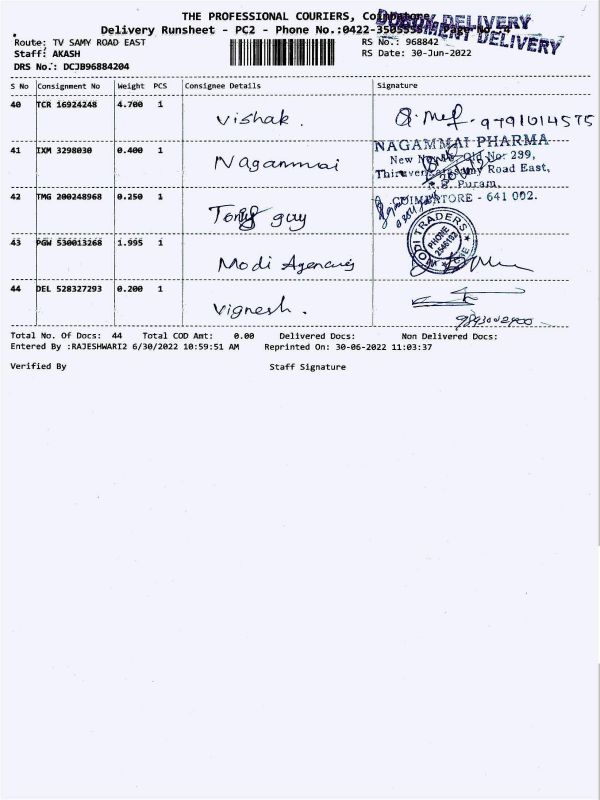 THE PROFESSIONAL COURIERS, Coimbatore
Delivery Runsheet - PC2 - Phone No.:0422-350555 Page No. 4
DOCUMENT DELIVERY
Route: TV SAMY ROAD EAST RS No.: 968842
Staff: AKASH RS Date: 30-Jun-2022
DRS No.: DCJB96884204
S No Consignment No Weight PCS Consignee Details Signature
40 TCR 16924248 4.700 1 Vishak. 9791014575
41 IXM 3298030 0.400 1 Naganmai
NAGAMMAI PHARMA
New No. Old No: 299,
Road East,
R.S. Puram,
COIMBATORE - 641 002.
42 TMG 200248968 0.250 1 Tony guy
43 PGW 530013268 1.995 1 Modi Agencies
MODI TRADERS
PHONE
2546192
44 DEL 528327293 0.200 1 Vignesh.
Total No. Of Docs: 44 Total COD Amt: 0.00 Delivered Docs: Non Delivered Docs:
Entered By :RAJESHWARI2 6/30/2022 10:59:51 AM Reprinted On: 30-06-2022 11:03:37
Verified By Staff Signature